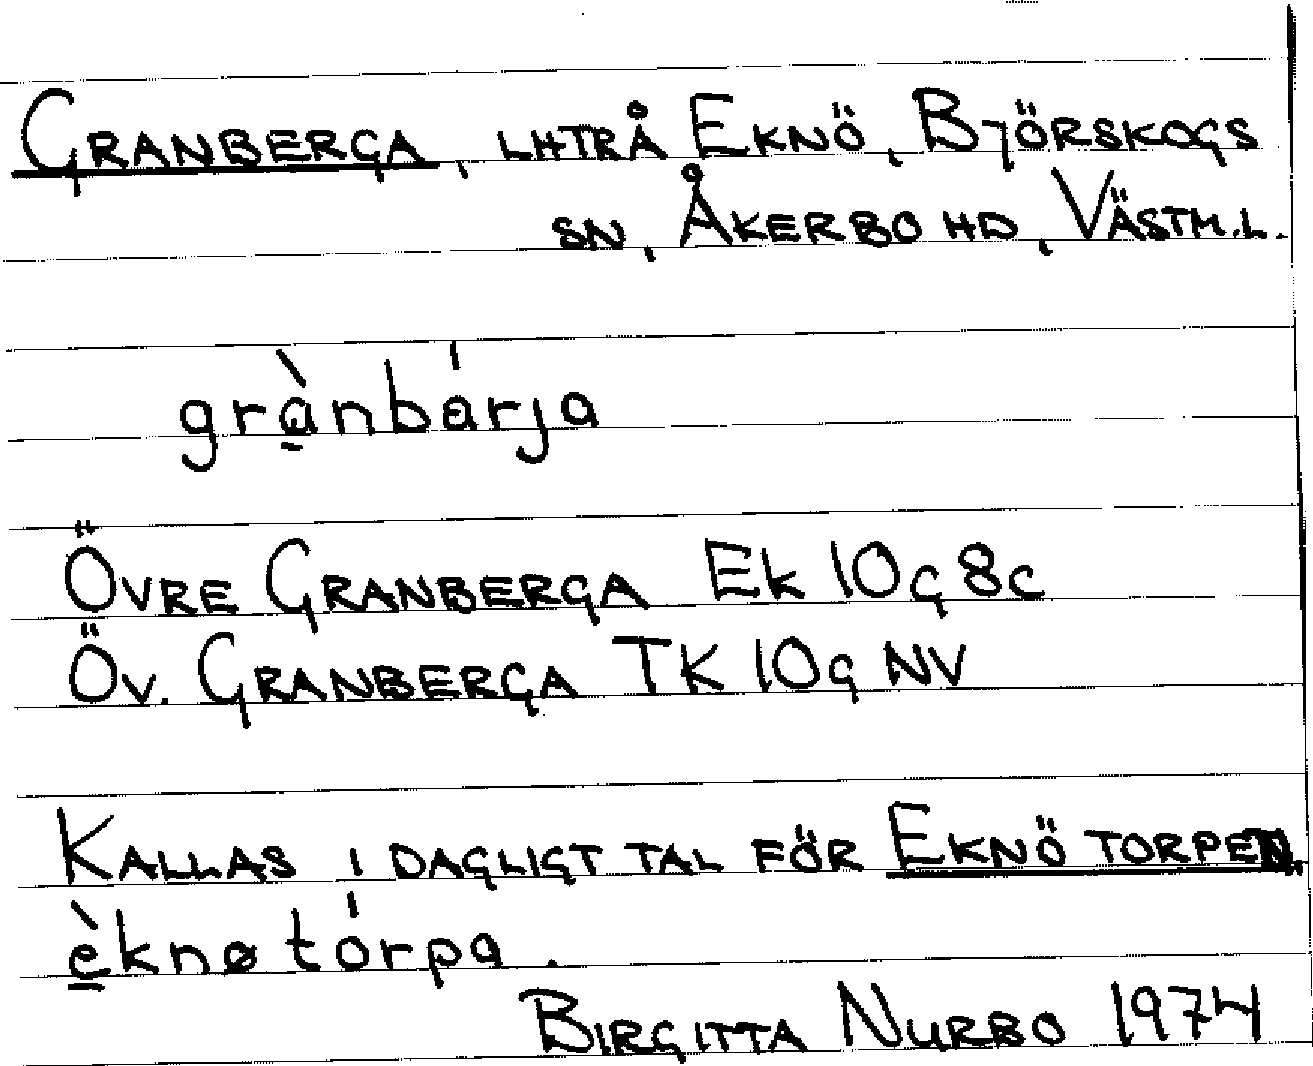 GRANBERGA, LHTRÅ EKNÖ, BJÖRSKOGS
SN, ÅKERBO HD, VÄSTM.L.
grànbárja
ÖVRE GRANBERGA EK 10G 8C
ÖV. GRANBERGA TK 10G NV
KALLAS I DAGLIGT TAL FÖR EKNÖ TORPEN,
èknø tórpa.
BIRGITTA NURBO 1974